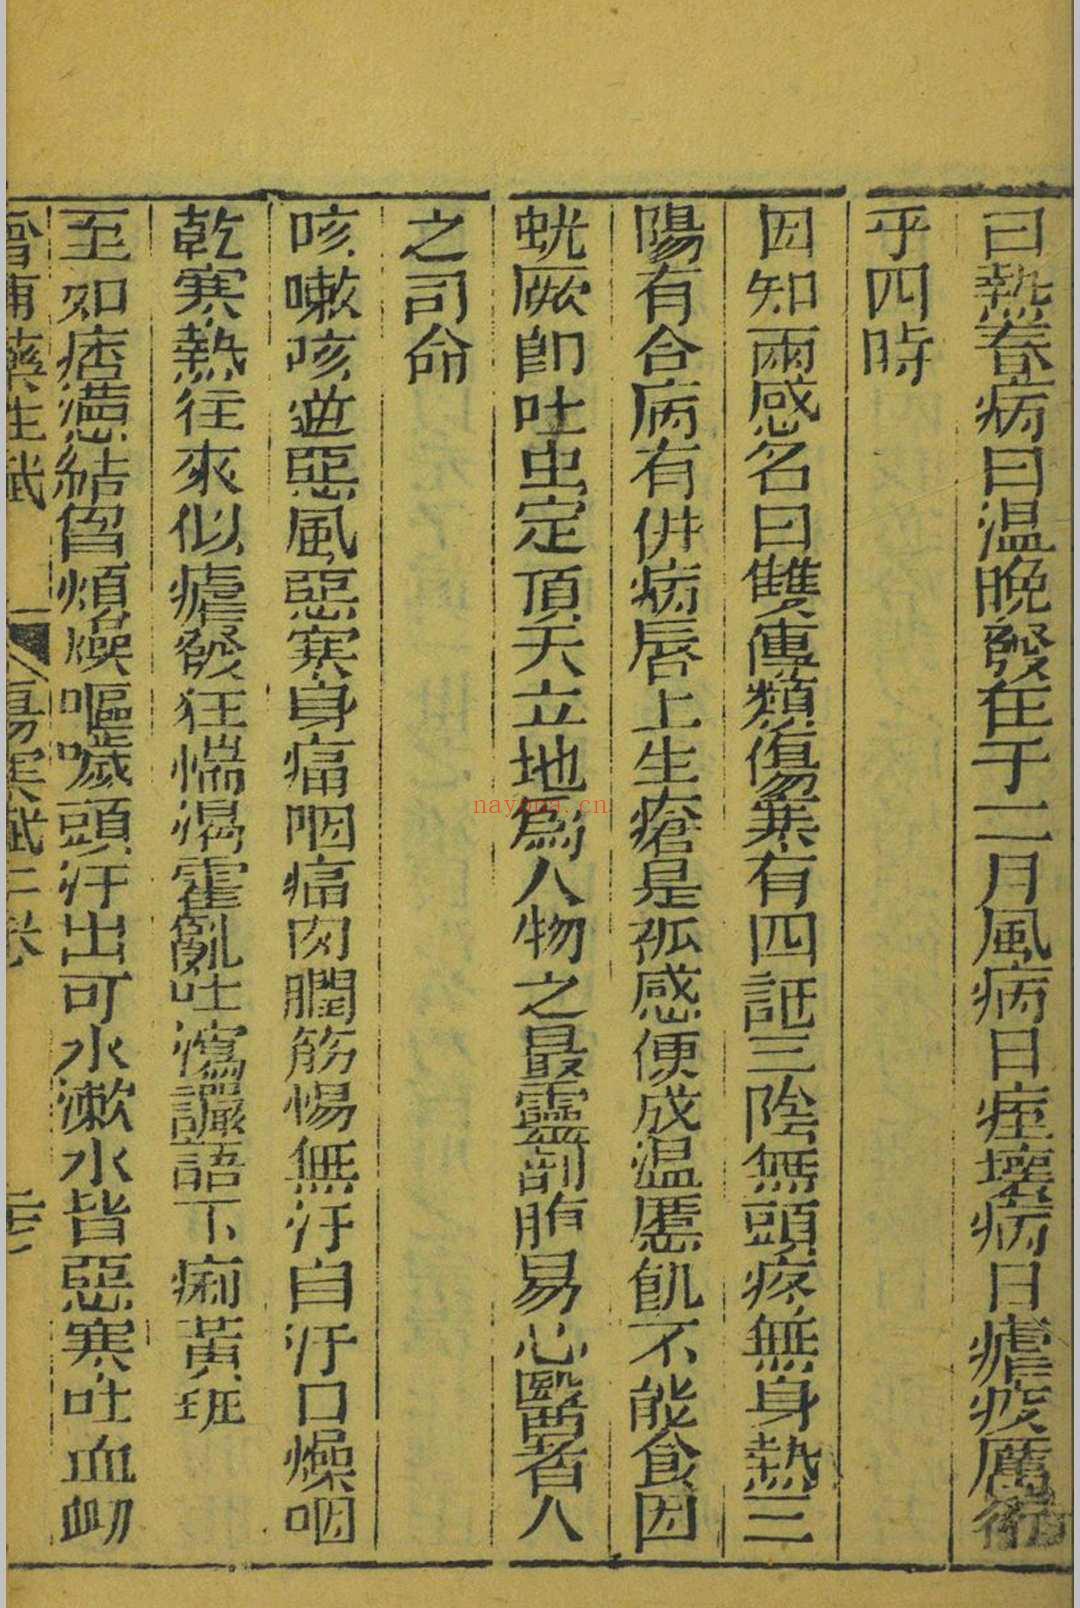 曰熱春病曰温晩發在于二月風病曰痓壞病曰瘧疫厲衍
乎四時
因知兩感名曰雙傳類傷寒有四証三陰無頭疼無身熱三
陽有合病有併病唇上生瘡是狐感便成温慝飢不能食因
蚘厥卽吐虫定頂天立地爲人物之最靈剖脂易心毉者人
之司命
咳嗽咳逆惡風惡寒身痛咽痛肉瞤筋惕無汗自汗口燥咽
乾寒熱往來似瘧發狂惴渴霍亂吐瀉讝語下痢黃班
至如痞懣結畱煩燥嘔噦頭汗出可水漱水皆惡寒吐血衂
藥性賦
傷寒賦二卷
nayona.cn